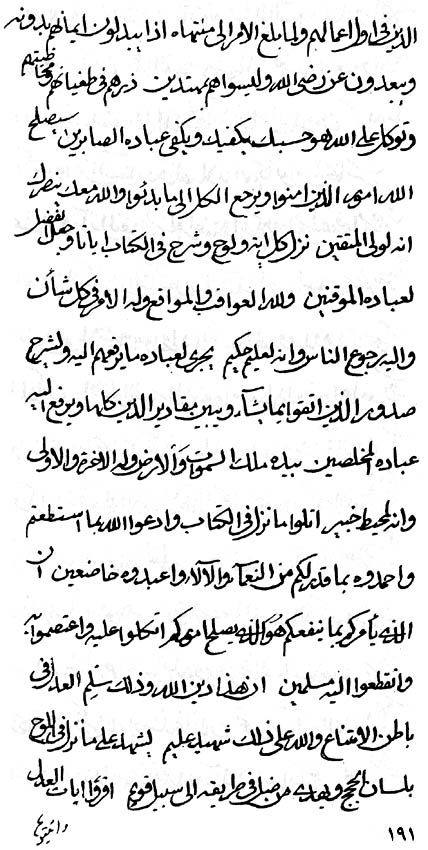 الذين في اول اعمالهم ولما بلغ الامر الى منتهاه اذا يبدلون ايمانهم بدونه
ويبعدون عن رضى الله وليسوا هم بمهتدين ذرهم في طغيانهم
وتوكل على الله هو حسبك يكفيك ويكفى عباده الصابرين سيصلح
الله امور الذين امنوا ويرجع الكل الى ما بدئوا والله معك ينصرك
انه لولى المتقين نزل كل اية ولوح وشرح في الكتاب ايانا وجعل تفضل
لعباده الموقنين ولله العواقب والمواقع وله الامر في كل شأن
واليه رجوع الناس وانه لعليم حكيم يجرى لعباده ما يرفعهم اليه ويشرح
صدور الذين اتقوا بما يشآء ويبين مقادير الذين كلها ويرفع اليه
عباده المخلصين بيده ملك السموات والارض وله الاخرة والاولى
وانه لمحيط خبير اتلوا ما نزل في الكتاب وادعوا الله بما استطعتم
واحمدوه بما قدر لكم من النعمآء والالآء واعبدوه خاضعين ان
الله يأمركم بما ينفعكم هو الذى يصلح اموركم اتكلوا عليه واعتصموا به
وانقطعوا اليه مسلمين ان هذا دين الله وذلك سلم العدل في
باطن الامتناع والله على ذلك شهيد عليم يشهد على ما نزل في اللوح
بلسان الحجج ويهدى من ضل في طريقه الى سبيل قويم اقرؤا ايات العدل
١٩١